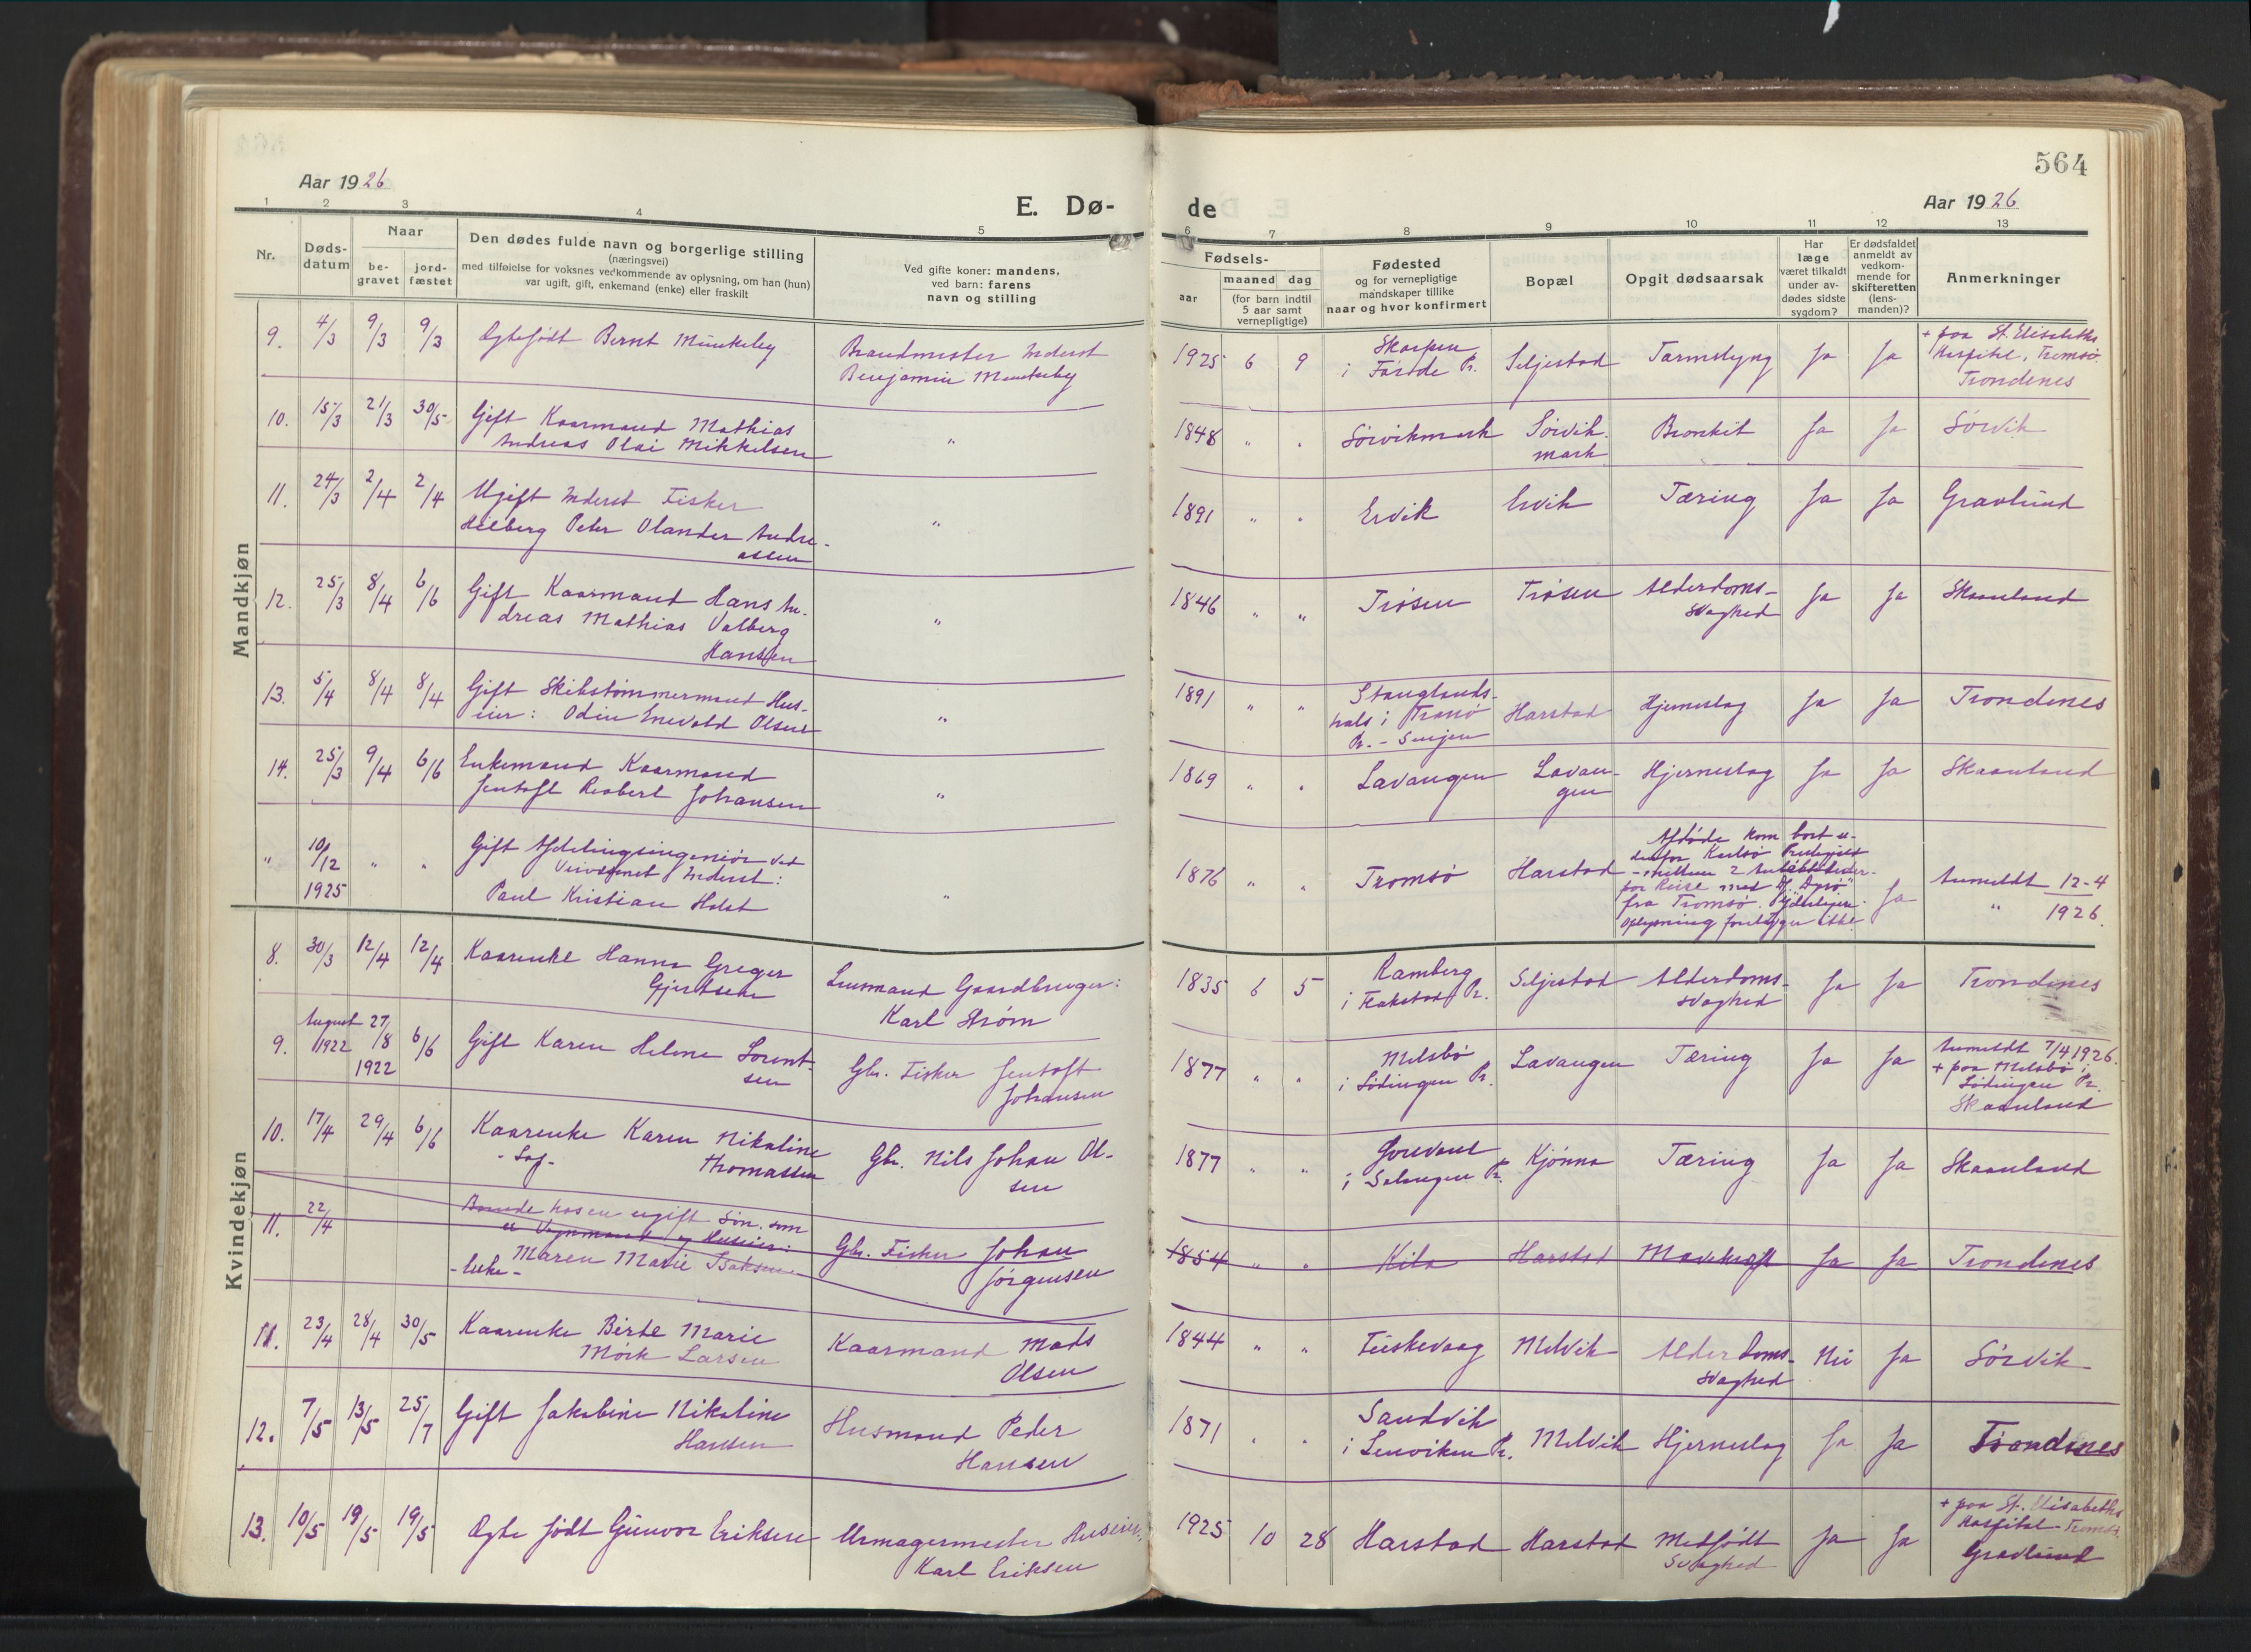 564
Aar 1926
Aar 1926
E. Dø-
de
1 2 3 4 5
6 7 8 9 10 11 12 13
Nr.
Døds-
datum
Naar
be-
gravet
jord-
fæstet
Den dødes fulde navn og borgerlige stilling
(næringsvei)
med tilføielse for voksnes vedkommende av oplysning, om han (hun)
var ugift, gift, enkemand (enke) eller fraskilt
Ved gifte koner: mandens,
ved barn: farens
navn og stilling
Fødsels-
aar
maaned dag
(for barn indtil
5 aar samt
vernepligtige)
Fødested
og for vernepligtige
mandskaper tillike
naar og hvor konfirmert
Bopæl
Opgit dødsaarsak
Har
læge
været tilkaldt
under av-
dødes sidste
sygdom?
Er dødsfaldet
anmeldt av
vedkom-
mende for
skifteretten
(lens-
manden)?
Anmerkninger
Mandkjøn
9. 4/3 9/3 9/3 Egtefødt Bernt Munkeby
Brandmester Inderst
Benjamin Munkeby
1925 6 9
Skarpen
i Pr.
Seljestad Tarmslyng Ja Ja
+ paa St. Elisabeths
Hospital, Tromsø.
Trondenes
10. 15/3 21/3 30/5 Gift Kaarmand Mathias
Andreas Olai Mikkelsen
"
1848 " " Sørvikmark
Sørvik-
mark
Bronkit Ja Ja Sørvik
11. 24/3 2/4 2/4 Ugift Inderst Fisker
Hilberg Peter Olander Andre-
assen
"
1891 " " Ervik Ervik Tæring Ja Ja Gravlund
12. 25/3 8/4 6/6 Gift Kaarmand Hans An-
dreas Mathias Valberg
Hansen
"
1846 " " Trøsen Trøsen
Alderdoms-
svaghed
Ja Ja Skaanland
13. 5/4 8/4 8/4 Gift Skibstømmermand Hus-
eier: Odin Enevold Olsen
"
1891 " "
Stanglands-
hals i Tranø
Pr. - Senjen
Harstad Hjerneslag Ja Ja Trondenes
14. 25/3 9/4 6/6 Enkemand Kaarmand
Jentoft Reabert Johansen
"
1869 " " Lavangen
Lavan-
gen
Hjerneslag Ja Ja Skaanland
" 10/12 " "
1925
Gift Afdelingsingeniør ved
Veivæsenet Inderst:
Paul Kristian Holst
"
1876 " " Tromsø Harstad
Afdøde kom bort u-
denfor Karlsø Prestegjeld
- mellem 2 -
for Reise med D/S "Dyrø"
fra Tromsø. Yderligere
oplysning foreligger ikke.
Ja
Anmeldt 12-4
" 1926.
Kvindekjøn
8. 30/3 12/4 12/4 Kaarenke Hanna Greger
Gjertsen
Lensmand Gaardbruger:
Karl Strøm
1835 6 5
Ramberg
i Flakstad Pr.
Seljestad
Alderdoms-
svaghed
Ja Ja Trondenes
9. August 1922 27/8 1922 6/6 Gift Karen Helene Lorent-
sen
Gbr. Fisker Jentoft
Johansen
1877 " "
Melsbø
i Lødingen Pr.
Lavangen Tæring Ja Ja
Anmeldt 7/4 1926.
+ paa Melsbø i
Lødingen Pr.
Skaanland
10. 17/4 29/4 6/6 Kaarenke Karen Nikoline
- Lap - Thomassen
Gbr. Nils Johan Ol-
sen
1877 " "
i Salangen Pr.
Kjønna Tæring Ja Ja Skaanland
11. 22/4
Boende hos en ugift Søn, som
er Vognmand og Huseier:
- Enke - Maren Marie Isaksen
Gbr. Fisker Johan
Jørgensen
1854 " " Kila Harstad Mavekræft Ja Ja Trondenes
11. 23/4 28/4 30/5 Kaarenke Birte Marie
Mørk Larsen
Kaarmand Mads
Olsen
1844 " " Fuskevaag Melvik
Alderdoms-
svaghed
Nei Ja Sørvik
12. 7/5 13/5 25/7 Gift Jakobine Nikoline
Hansen
Husmand Peder
Hansen
1871 " "
Sandvik
i Lenviken Pr.
Melvik Hjerneslag Ja Ja Trondenes
13. 10/5 19/5 19/5 Egte født Gunvor Eriksen
Urmagermester Huseier:
Karl Eriksen
1925 10 28 Harstad Harstad
Medfødt
Svaghed
Ja Ja
+ paa St. Elisabeths
Hospital - Tromsø.
Gravlund